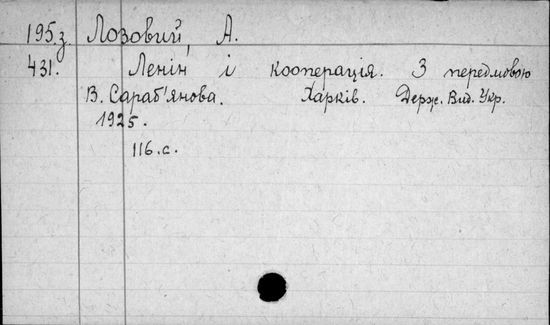 195.з. Лозовий, А.
431. Ленін і кооперація. З передмовою
В. Сараб'янова. Харків. Держ. Вид. Укр.
1925.
116.с.